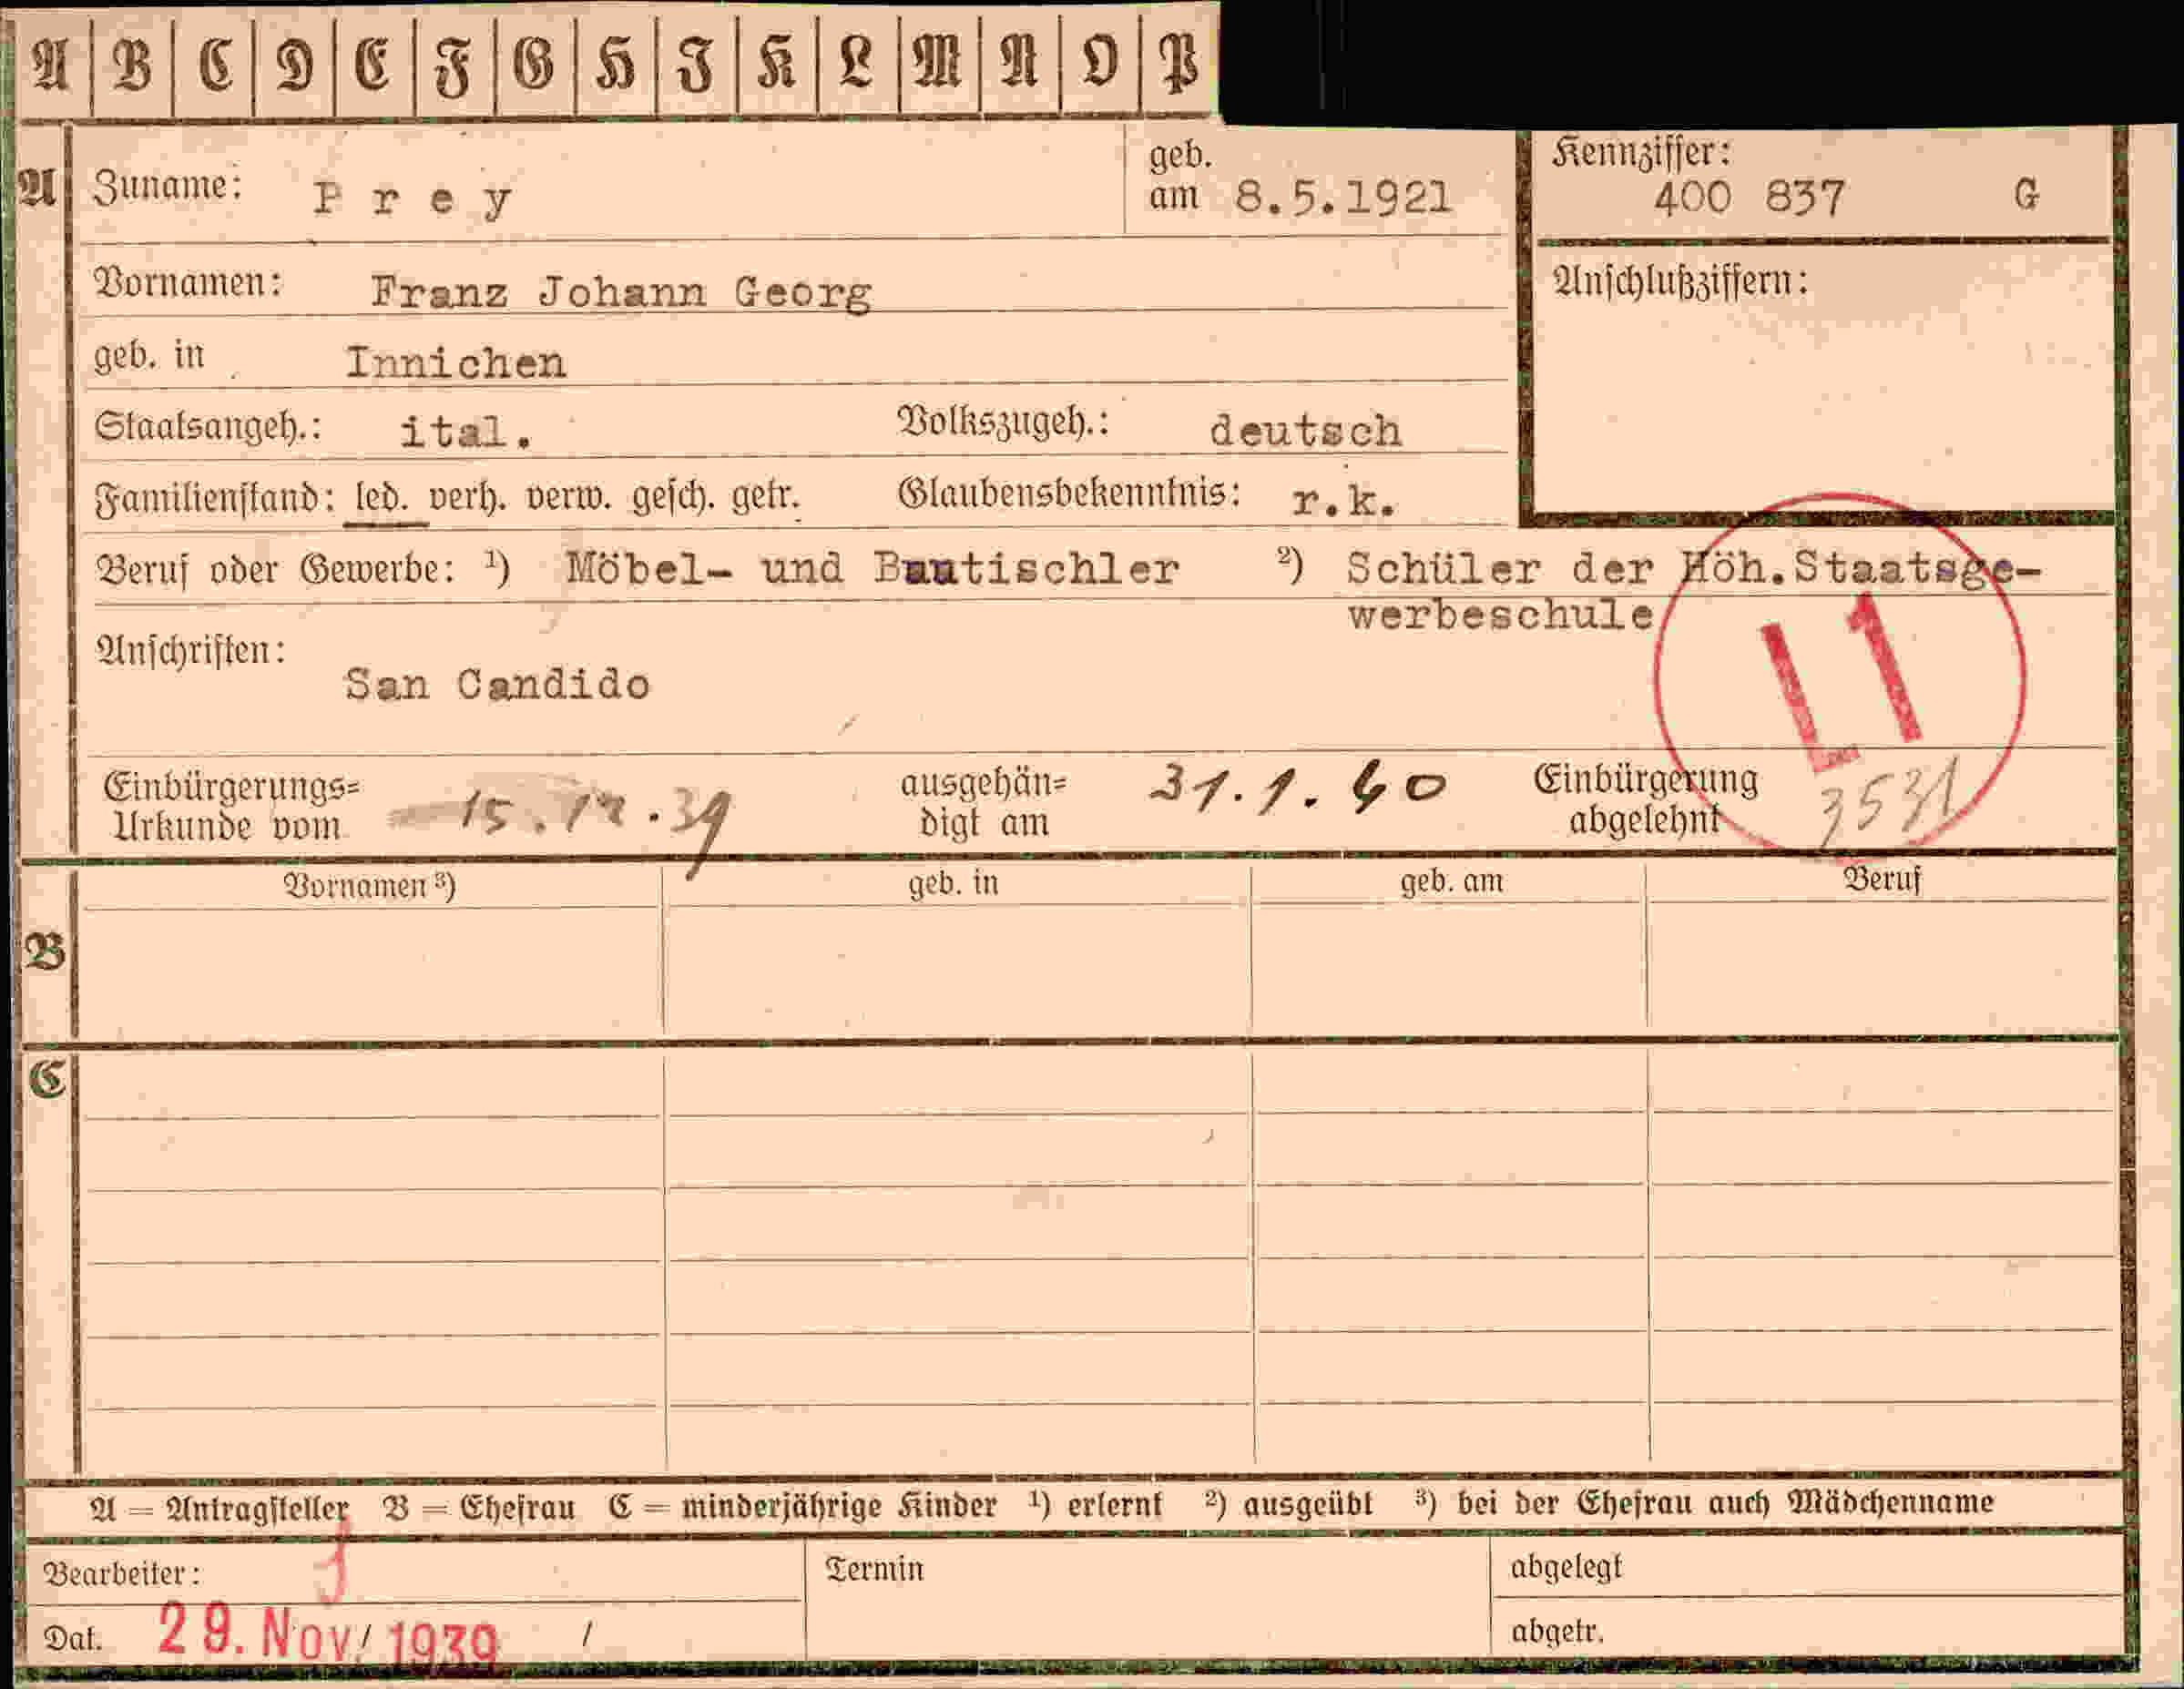 A B C D E F G H I K L M N O P
A Zuname: P r e y geb. am 8.5.1921
Kennziffer: 400 837 G
Vornamen: Franz Johann Georg
Anschlußziffern:
geb. in Innichen
Staatsangeh.: ital. Volkszugeh.: deutsch
Familienstand: led. verh. verw. gesch. getr. Glaubensbekenntnis: r.k.
Beruf oder Gewerbe: ¹) Möbel- und Bautischler ²) Schüler der Höh.Staatsge-
werbeschule
Anschriften:
San Candido
L1
Einbürgerungs=
Urkunde vom 15.12.39
ausgehän=
digt am 31.1.40
Einbürgerung
abgelehnt 3531
Vornamen ³) geb. in geb. am Beruf
B
C
A = Antragsteller B = Ehefrau C = minderjährige Kinder ¹) erlernt ²) ausgeübt ³) bei der Ehefrau auch Mädchenname
Bearbeiter: Termin abgelegt
Dat. 29. Nov. 1939 / abgetr.